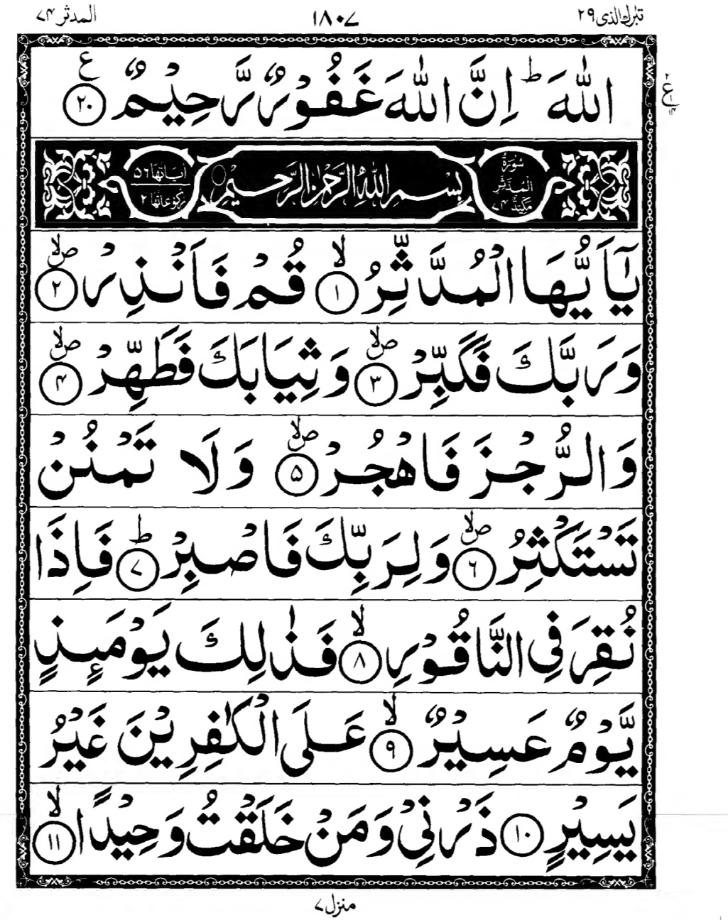 تبٰرك الذی ٢٩ ١٨٠٧ المدثر ٧٤
اللّٰهَ ؕ اِنَّ اللّٰهَ غَفُوْرٌ رَّحِيْمٌ ﴿٢٠﴾ ع
سُوْرَةُ الْمُدَّثِّرِ مَكِّيَّةٌ ٧٤ بِسْمِ اللّٰهِ الرَّحْمٰنِ الرَّحِيْمِ اٰيَاتُهَا ٥٦ رُكُوْعَاتُهَا ٢
يٰۤاَيُّهَا الْمُدَّثِّرُ ۙ﴿١﴾ قُمْ فَاَنْذِرْ ۪ۙ﴿٢﴾
وَرَبَّكَ فَكَبِّرْ ۪ۙ﴿٣﴾ وَثِيَابَكَ فَطَهِّرْ ۪ۙ﴿٤﴾
وَالرُّجْزَ فَاهْجُرْ ۪ۙ﴿٥﴾ وَلَا تَمْنُنْ
تَسْتَكْثِرُ ۪ۙ﴿٦﴾ وَلِرَبِّكَ فَاصْبِرْ ؕ﴿٧﴾ فَاِذَا
نُقِرَ فِي النَّاقُوْرِ ۙ﴿٨﴾ فَذٰلِكَ يَوْمَىِٕذٍ
يَّوْمٌ عَسِيْرٌ ۙ﴿٩﴾ عَلَى الْكٰفِرِيْنَ غَيْرُ
يَسِيْرٍ ﴿١٠﴾ ذَرْنِيْ وَمَنْ خَلَقْتُ وَحِيْدًا ۙ﴿١١﴾
منزل ٧